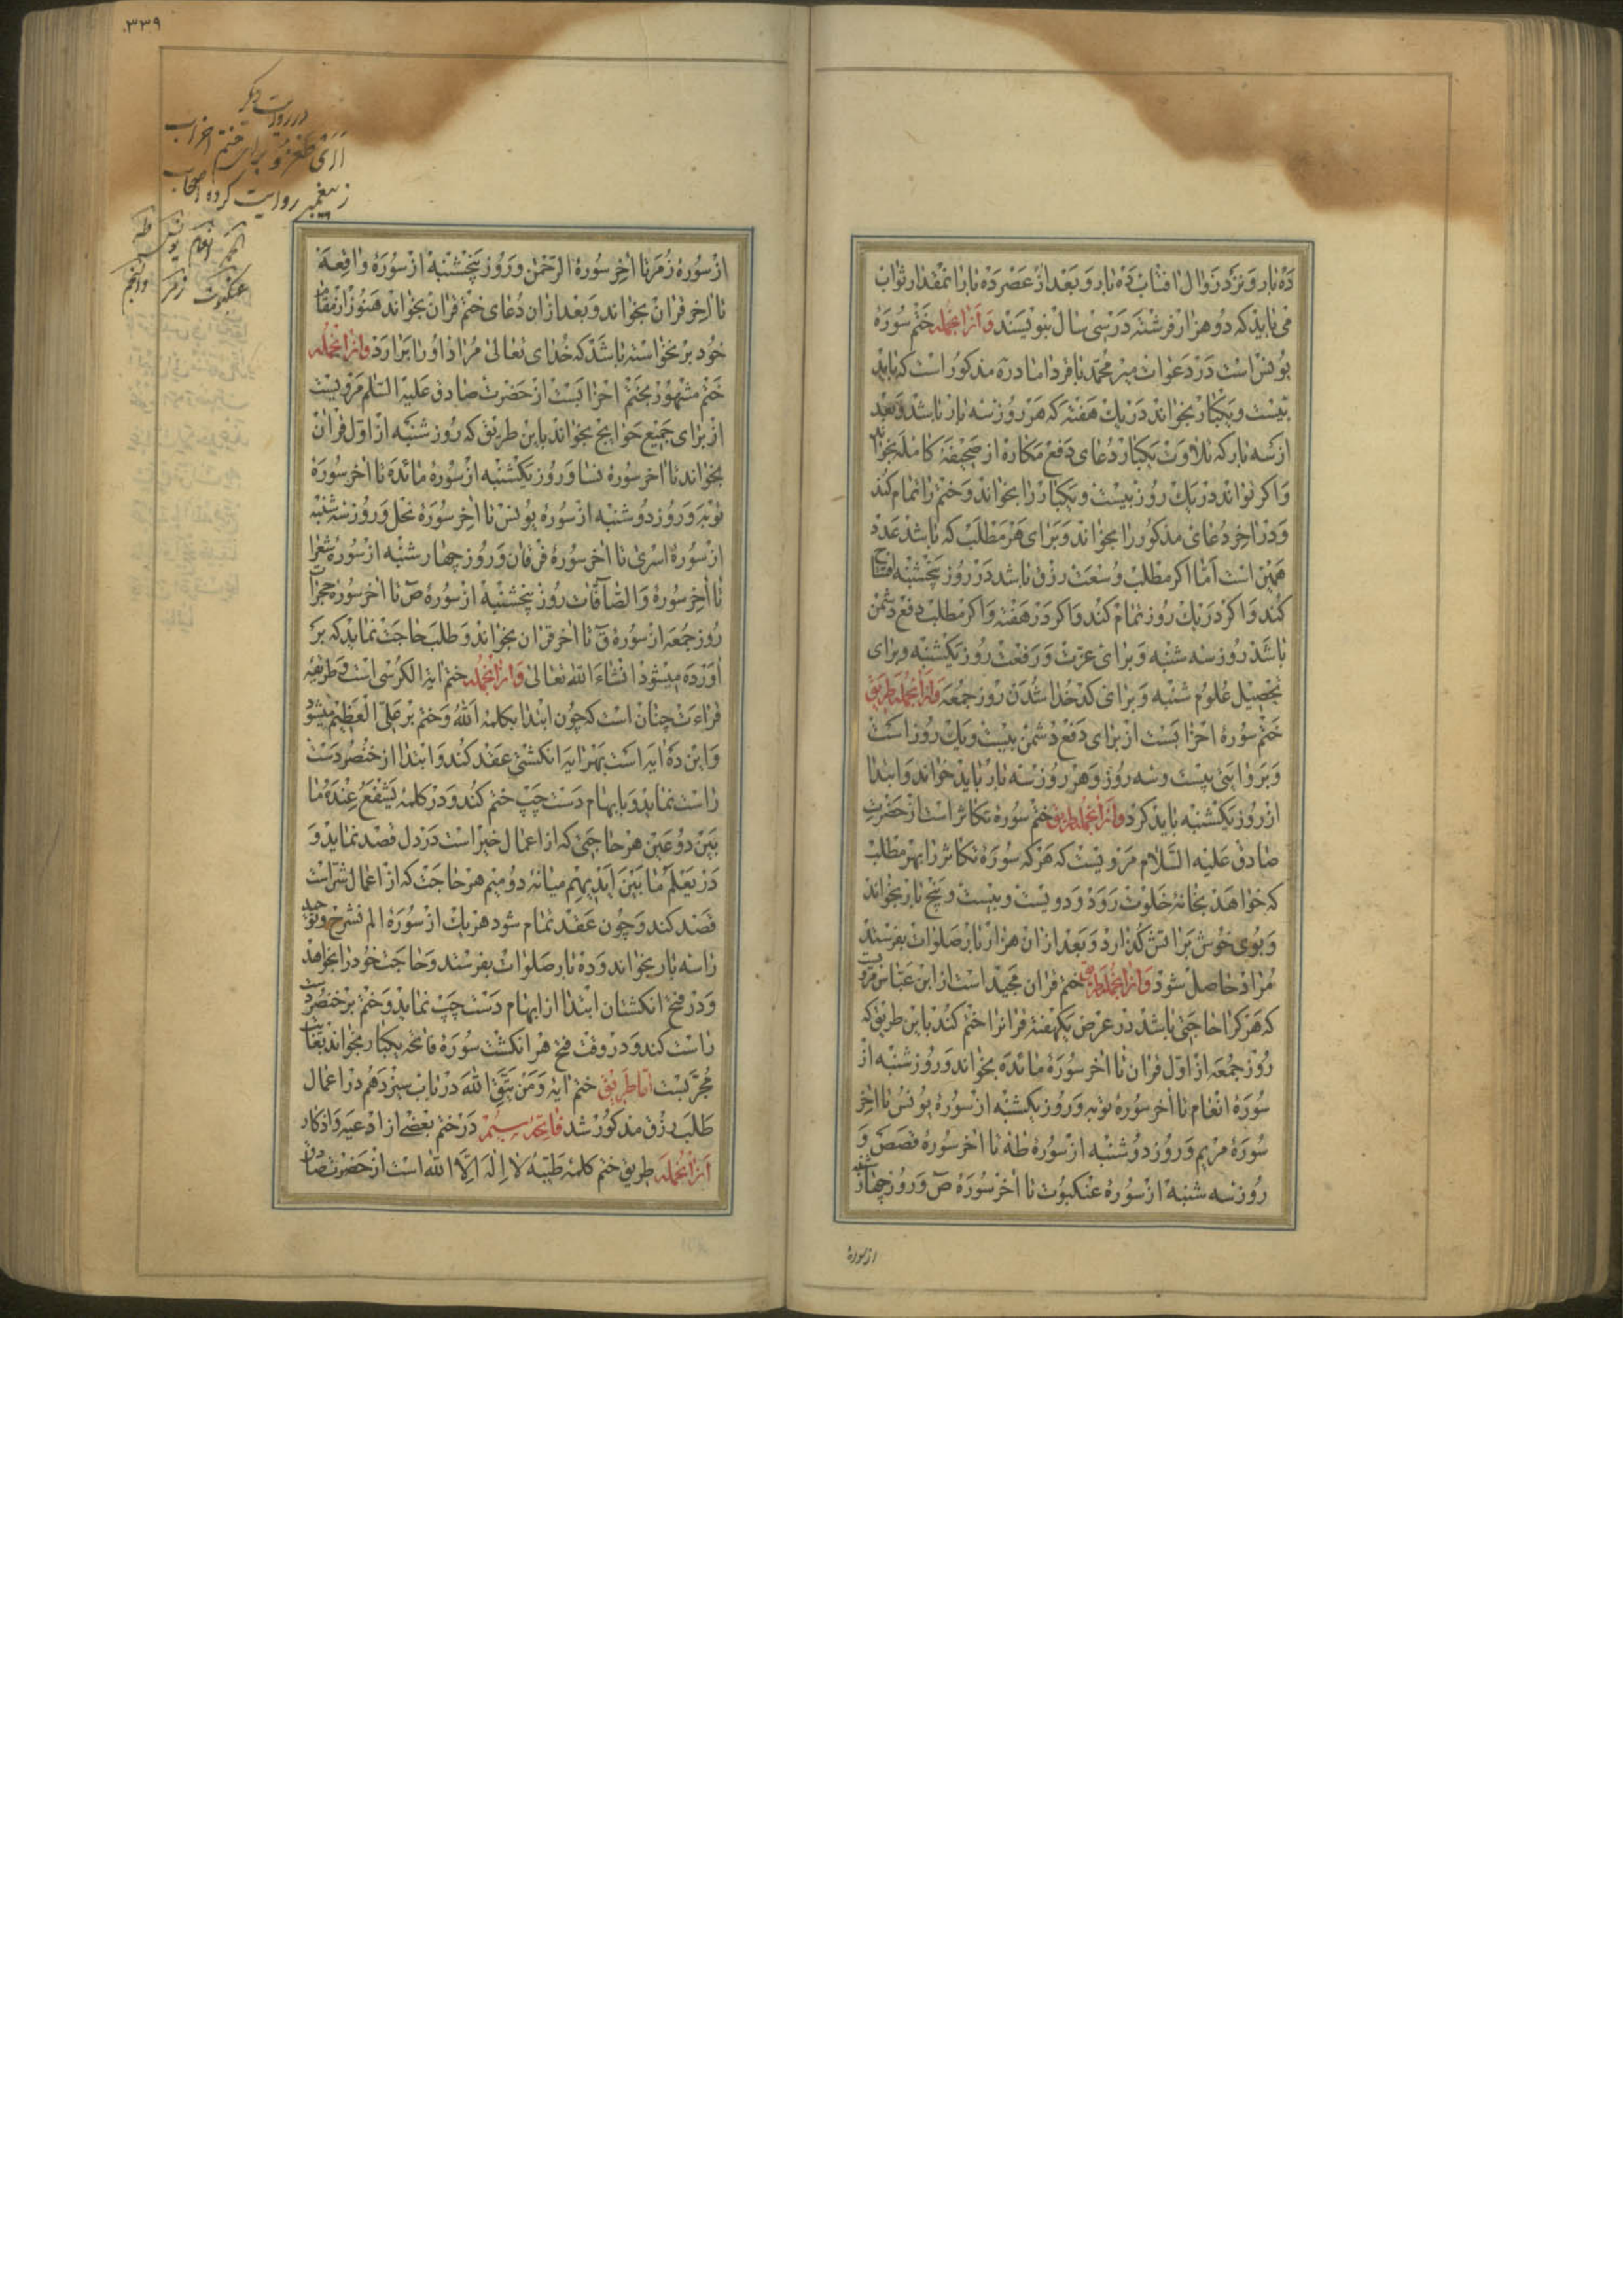 ده بار و نزد زوال افتاب ده بار و بعد از عصر ده بار انمقدار ثواب
می یابد که دو هزار فرشته در سی سال بنویسند و از انجمله ختم سورهٔ
یونس است در دعوات میر محمد باقر داماد ره مذکور است که باید
بیست و یکبار بخواند در یک هفته که هر روز سه بار باشد و بعد
از سه بار که تلاوت یکبار دعای دفع مکاره از صحیفهٔ کامله بخواند
و اکر تواند در یک روز بیست و یکبار را بخواند و ختم را تمام کند
و در اخر دعای مذکور را بخواند و برای هر مطلب که باشد عدد
همین است اما اکر مطلب وسعت رزق باشد در روز پنجشنبه افتتاح
کند و اکر در یک روز تمام کند و اکر در هفته و اکر مطلب دفع دشمن
باشد روز سه شنبه و برای عزت و رفعت روز یکشنبه و برای
تحصیل علوم شنبه و برای کدخدا شدن روز جمعه و از انجمله طریق
ختم سورهٔ احزابست از برای دفع دشمن بیست و یک روز است
و بروایتی بیست و سه روز و هر روز سه بار باید خواند و ابتدا
از روز یکشنبه باید کرد و از انجمله طریق ختم سورهٔ تکاثر است از حضرت
صادق علیه السلام مرویست که هر که سورهٔ تکاثر را بهر مطلب
که خواهد بخانهٔ خلوت رود و دویست و بیست و پنج بار بخواند
و بوی خوش بر اتش کذارد و بعد از ان هزار بار صلوات بفرستد
مراد حاصل شود و از انجمله طریق ختم قران مجید است از ابن عباس مرویست
که هر کرا حاجتی باشد در عرض یکهفته قرانرا ختم کند باین طریق که
روز جمعه از اول قران تا اخر سورهٔ مائده بخواند و روز شنبه از
سورهٔ انعام تا اخر سورهٔ توبه و روز یکشنبه از سورهٔ یونس تا اخر
سورهٔ مریم و روز دوشنبه از سورهٔ طه تا اخر سورهٔ قصص و
روز سه شنبه از سورهٔ عنکبوت تا اخر سورهٔ ص و روز چهارشنبه
از سورهٔ
۳۳۹
در روایت دیکر
برای ختم احزاب
ز پیغمبر روایت کرده اصحاب
انعام یونس طه
عنکبوت زمر والنجم
از سورهٔ زمر تا اخر سورهٔ الرحمن و روز پنجشنبه از سورهٔ واقعه
تا اخر قران بخواند و بعد از ان دعای ختم قران بخواند هنوز از مقام
خود بر نخواسته باشد که خدای تعالی مراد او را برارد و از انجمله
ختم مشهور بختم احزابست از حضرت صادق علیه السلم مرویست
از برای جمیع حوایج بخواند باین طریق که روز شنبه از اول قران
بخواند تا اخر سورهٔ نسا و روز یکشنبه از سورهٔ مائده تا اخر سورهٔ
توبه و روز دوشنبه از سورهٔ یونس تا اخر سورهٔ نحل و روز سه شنبه
از سورهٔ اسری تا اخر سورهٔ فرقان و روز چهارشنبه از سورهٔ شعرا
تا اخر سورهٔ والصافات روز پنجشنبه از سورهٔ ص تا اخر سورهٔ حجرات
روز جمعه از سورهٔ ق تا اخر قران بخواند و طلب حاجت نماید که بر
اورده میشود انشاء الله تعالی و از انجمله ختم ایة الکرسی است و طریقهٔ
قراءت چنان است که چون ابتدا بکلمهٔ الله و ختم بر علی العظیم میشود
و این ده ایه است بهر ایه انکشتی عقد کند و ابتدا از خنصر دست
راست نماید و بابهام دست چپ ختم کند و در کلمهٔ یشفع عنده ما
بین دو عین هر حاجتی که از اعمال خیر است در دل قصد نماید و
در یعلم ما بین ایدیهم میانهٔ دو میم هر حاجت که از اعمال شر است
قصد کند و چون عقد تمام شود هر یک از سورهٔ الم نشرح و توحید
را سه بار بخواند و ده بار صلوات بفرستد و حاجت خود را بخواهد
و در فتح انکشتان ابتدا از ابهام دست چپ نماید و ختم بر خنصر دست
راست کند و در وقت فتح هر انکشت سورهٔ فاتحه یکبار بخواند بغایت
مجربست اما طریق ختم ایهٔ و من یتق الله در باب سیزدهم در اعمال
طلب رزق مذکور شد فایدهٔ سیم در ختم بعضی از ادعیه و اذکار
از انجمله طریق ختم کلمهٔ طیبهٔ لا اله الا الله است از حضرت صادق